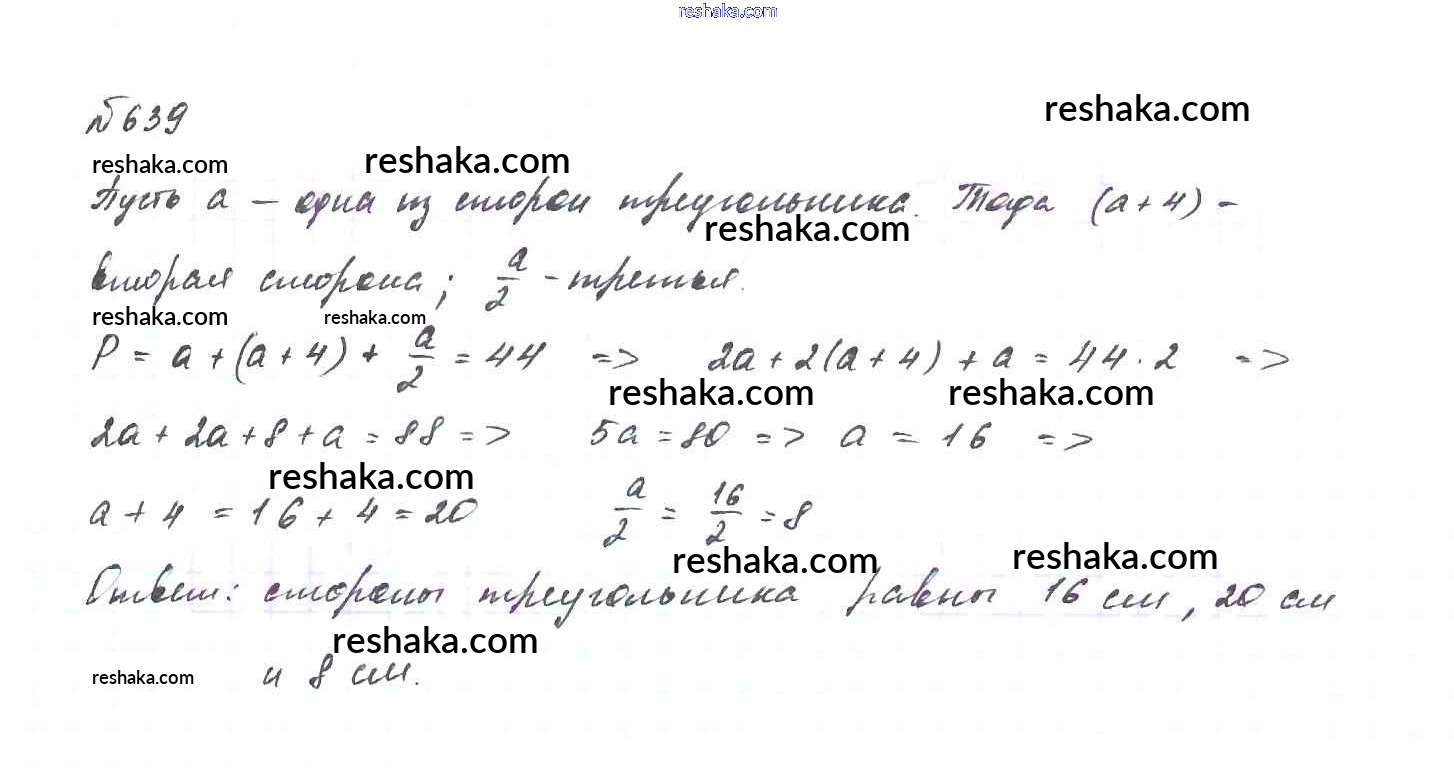 reshaka.com
№639
reshaka.com
reshaka.com
reshaka.com
Пусть a – одна из сторон треугольника. Тогда (a+4) –
reshaka.com
вторая сторона; a/2 – третья.
reshaka.com
reshaka.com
P = a + (a + 4) + a/2 = 44 => 2a + 2(a + 4) + a = 44 · 2 =>
reshaka.com
reshaka.com
2a + 2a + 8 + a = 88 => 5a = 80 => a = 16 =>
reshaka.com
a + 4 = 16 + 4 = 20 a/2 = 16/2 = 8
reshaka.com
reshaka.com
Ответ: стороны треугольника равны 16 см, 20 см
reshaka.com
reshaka.com
и 8 см.